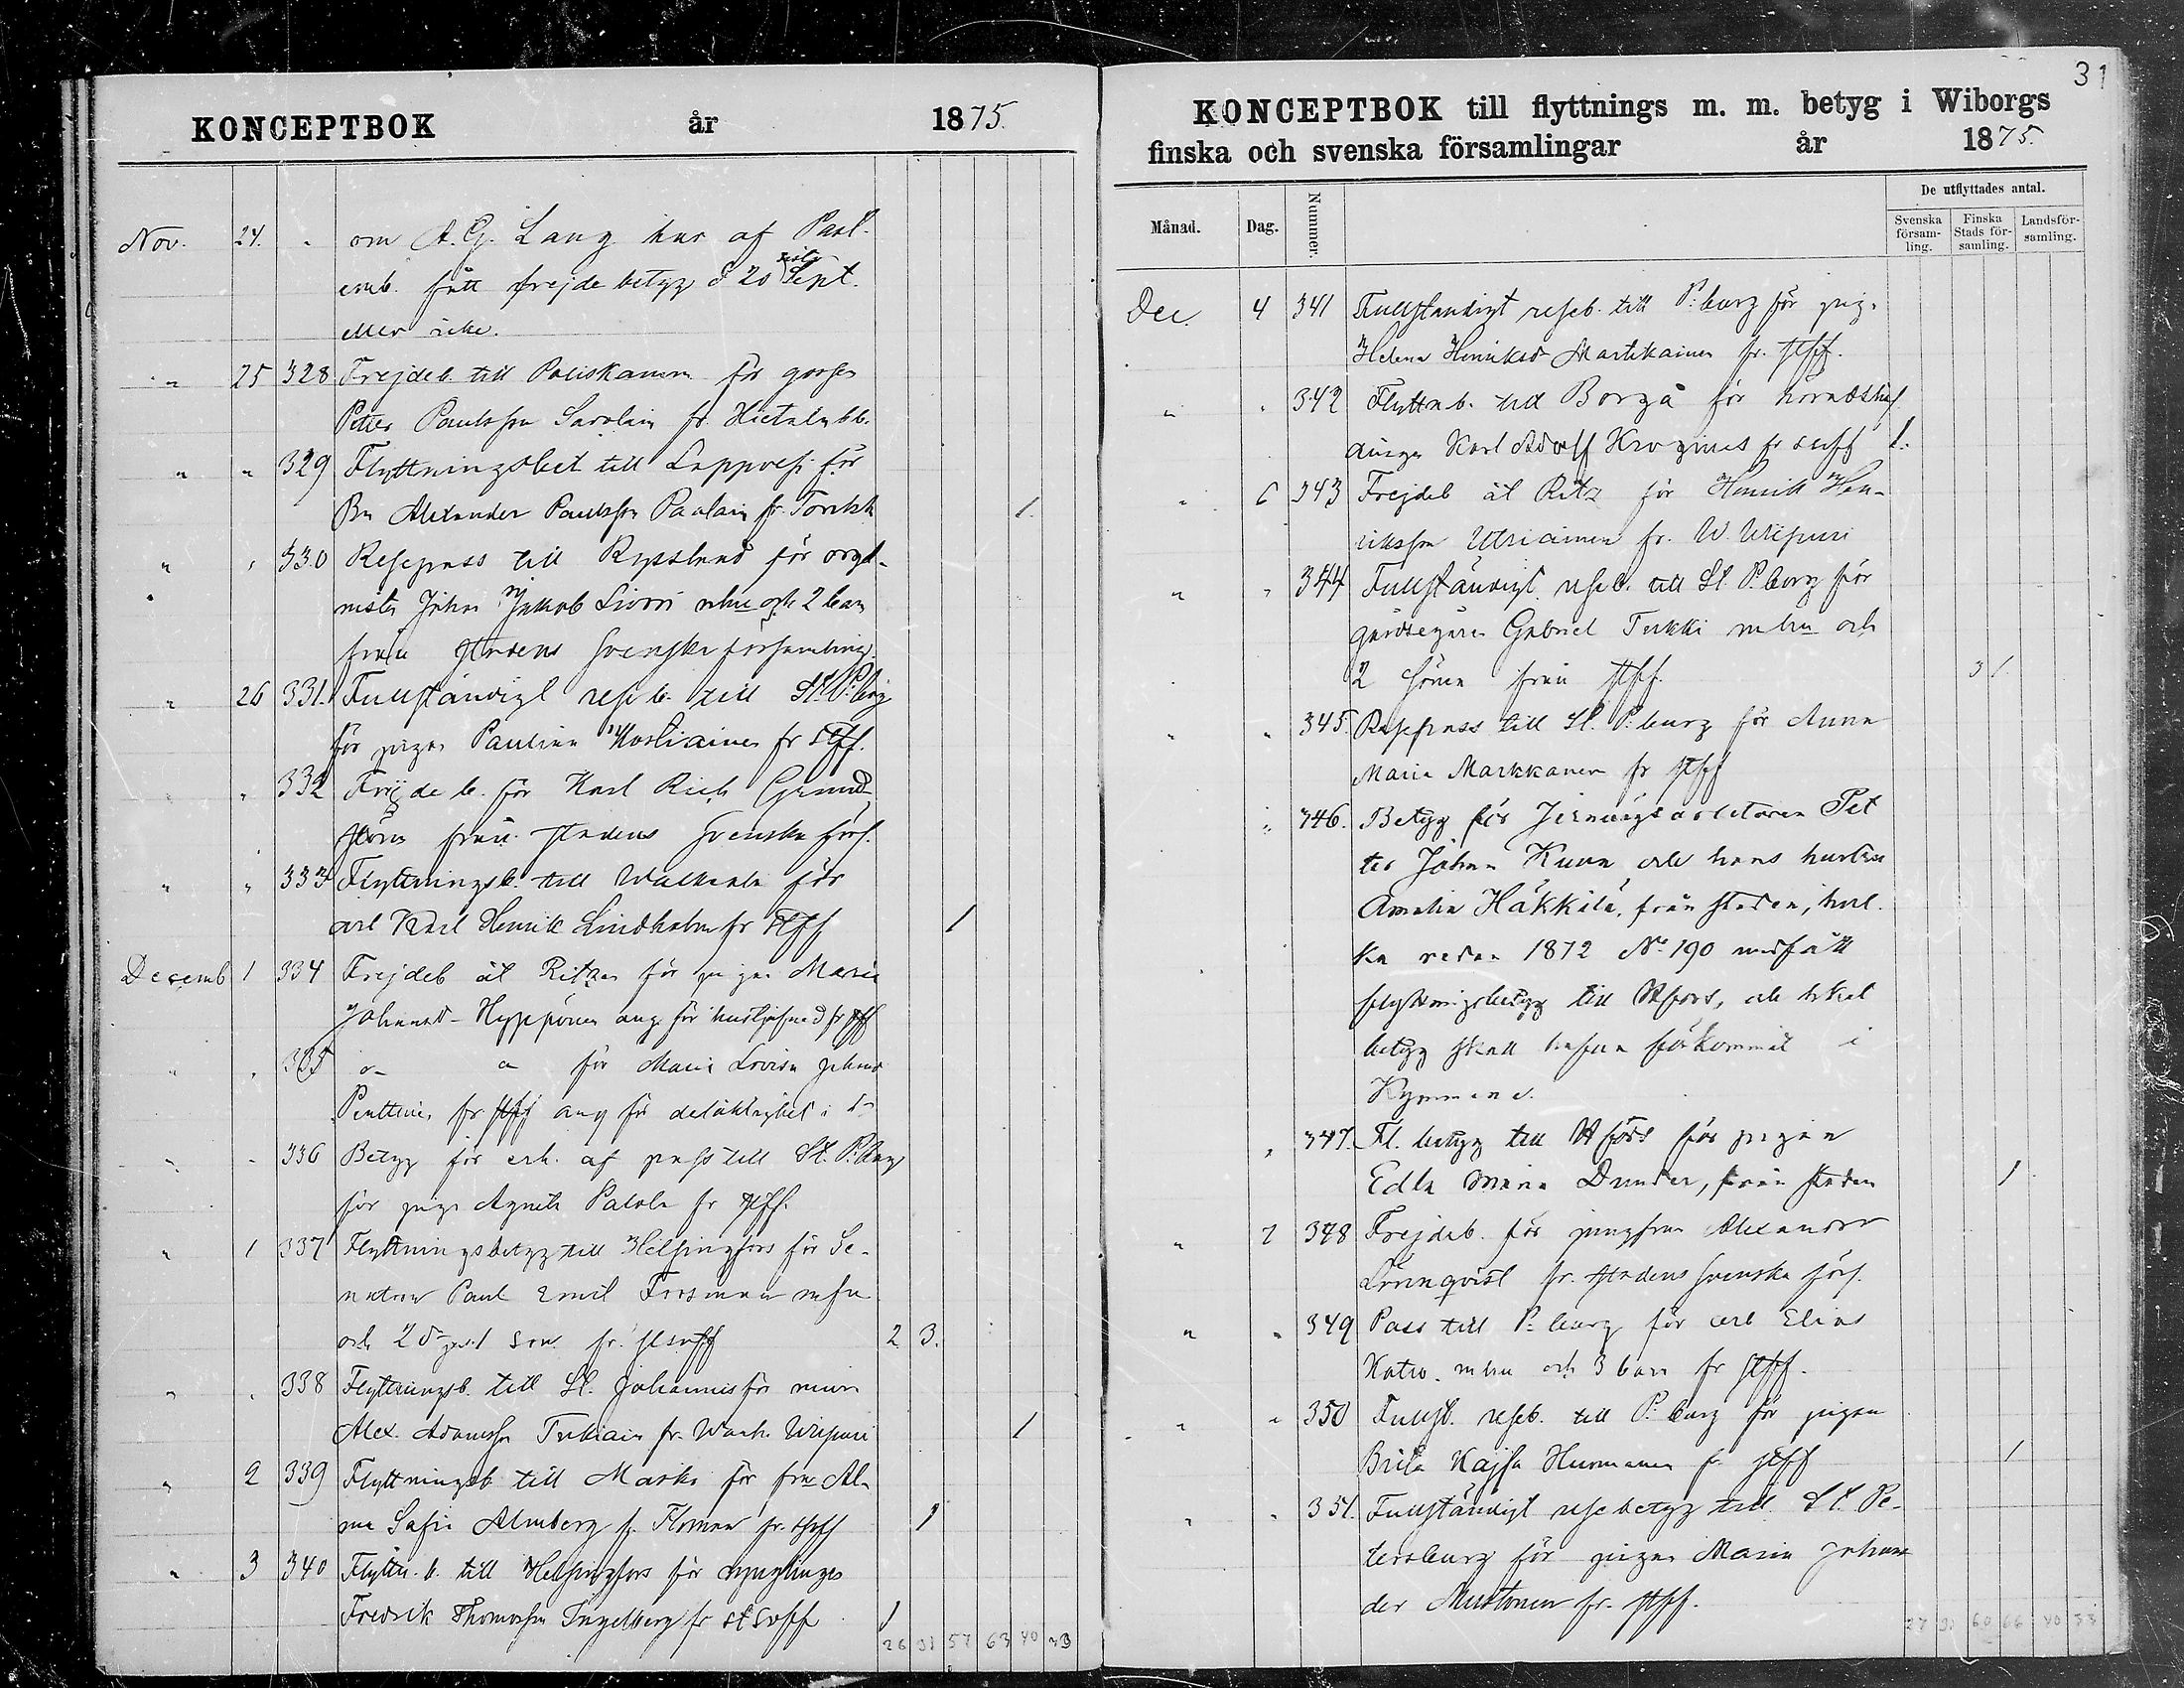 KONCEPTBOK år 1875.
Nov. 24. " om A. G. Lang har af Past.
emb. fått frejdebetyg d 20 sistl. Sept.
eller icke.
" 25 328 Frejdeb. till Poliskamm för gossen
Petter Paulsson Savolain fr. Hietala bb.
" " 329 Flyttningsbet till Lappvesi för
Bn Alexander Paulsson Paalain fr. 1.
" " 330 Resepass till Ryssland för orga-
nisten Johan Jakob mhu och 2 barn
från stadens svenska församling.
" 26 331. Fullständigt reseb. till St. P:burg
för pigan Paulina fr stff.
" 332 Frejdeb. för Karl Rich Grund-
ström från stadens svenska förs.
" " 333 Flyttningsb. till Walkeala för
arb Karl Henrik Lindholm fr stff 1
Decemb 1 334 Frejdeb åt Ritz för pigan Maria
Johansdr Hyppönen ang för fr stff
" " 335 d:o a för Maria Lovisa Johansdr
Penttinen fr stff ang för delaktighet i d:o
" " 336 Betyg för erh. af pass till St. P:burg
för pigan Agneta Pakola fr stff.
" 1 337 Flyttningsbetyg till Helsingfors för Se-
natorn Paul Emil Forsman mhu
och 2 d:r 1 son fr. stsvff 2 3.
" " 338 Flyttningsb. till St. Johannis för
Alex. Adamsson Tukiain fr. Wanh. Wiipuri 1
" 2 339 Flyttningsb till Masku för fru Al-
ma Sofia Almberg f. Floman fr. stsvff 1
" 3 340 Flyttn. b. till Helsingfors för ynglingen
Fredrik Thomasson Ingelberg fr st svff 1
26 31 57 63 40 33
31
KONCEPTBOK till flyttnings m. m. betyg i Wiborgs
finska och svenska församlingar år 1875.
De utflyttades antal.
Månad. Dag. Nummer. Svenska församling. Finska Stads församling. Landsförsamling.
Dec. 4 341 Fullständigt reseb. till P:burg för pig.
Helena Henriksdr Martikainen fr. stff.
" " 342 Flyttn b. till Borgå för
Karl Adolf Krogius fr svff 1.
" 6 343 Frejdeb åt Ritz för Henrik Hen-
riksson Utriainen fr. W. Wiipuri
" " 344 Fullständigt reseb. till St P:burg för
gårdsegaren Gabriel Tukki mhu och
2 söner från stff. 3 1
" " 345. Respass till St. P:burg för Anna
Maria Markkanen fr stff
" 346. Betyg för Jernvägsarbetaren Pet
ter Johan Kuva och hans hustru
Amalia Häkkilä, från staden, hvil-
ka redan 1872 No 190 utfått
flyttningsbetyg till Hfors, och hvilket
betyg skall hafva förkommit i
Kymmene.
" 347. Fl. betyg till Hfors för pigan
Edla Maria Dunder, från staden 1
" 7 348 Frejdeb. för jungfrun Alexandra
Lönnqvist fr. stadens svenska förs.
" " 349 Pass till P:burg för arb Elias
mhu och 3 barn fr stff.
" " 350 Fullst. reseb. till P:burg för pigan
Brita Kajsa Hurmanen fr stff 1
" " 351. Fullständigt resebetyg till St. Pe-
tersburg för pigan Maria Johans
der Mustonen fr. stff.
27 31 60 66 40 33